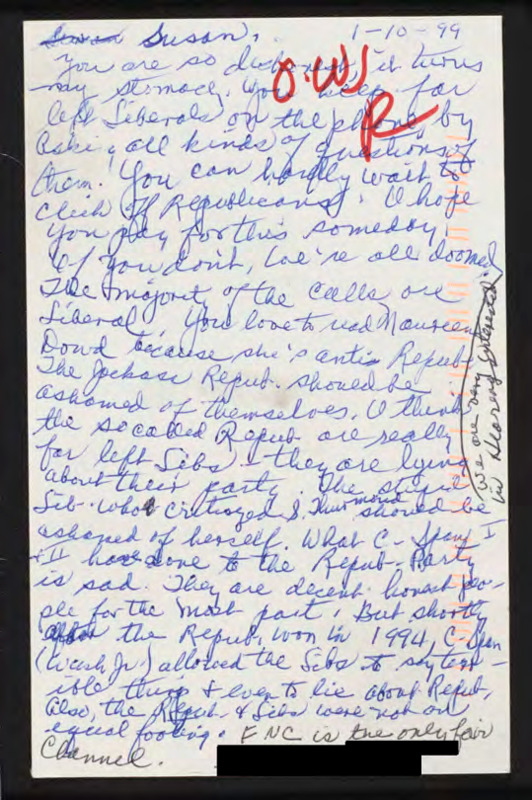 Susan, 1-10-99
You are so dishonest, it turns
my stomach. You keep far
left Liberals on the phone, by
asking all kinds of questions of
them. You can hardly wait to
click off Republicans. I hope
you pay for this someday.
If you don't, we're all doomed
The majority of the calls are
Liberal. You love to read Maureen
Dowd because she's antie Repub.
The Jackass Repub. should be
ashamed of themselves. I think
the so called Repub are really
far left Libs - they are lying
about their party. The stupid
Lib. who criticized S. Thurmond should be
ashamed of herself. What C-Span I
+ II have done to the Repub. Party
is sad. They are decent honest peo-
ple for the most part. But shortly
after the Repub. won in 1994, C-Span
(Wash Jr.) allowed the Libs to say terr-
ible things & even to lie about Repub.
Also, the Repub. & Libs were not on
equal footing. FNC is the only fair
Channel.
We are very interested
in hearing